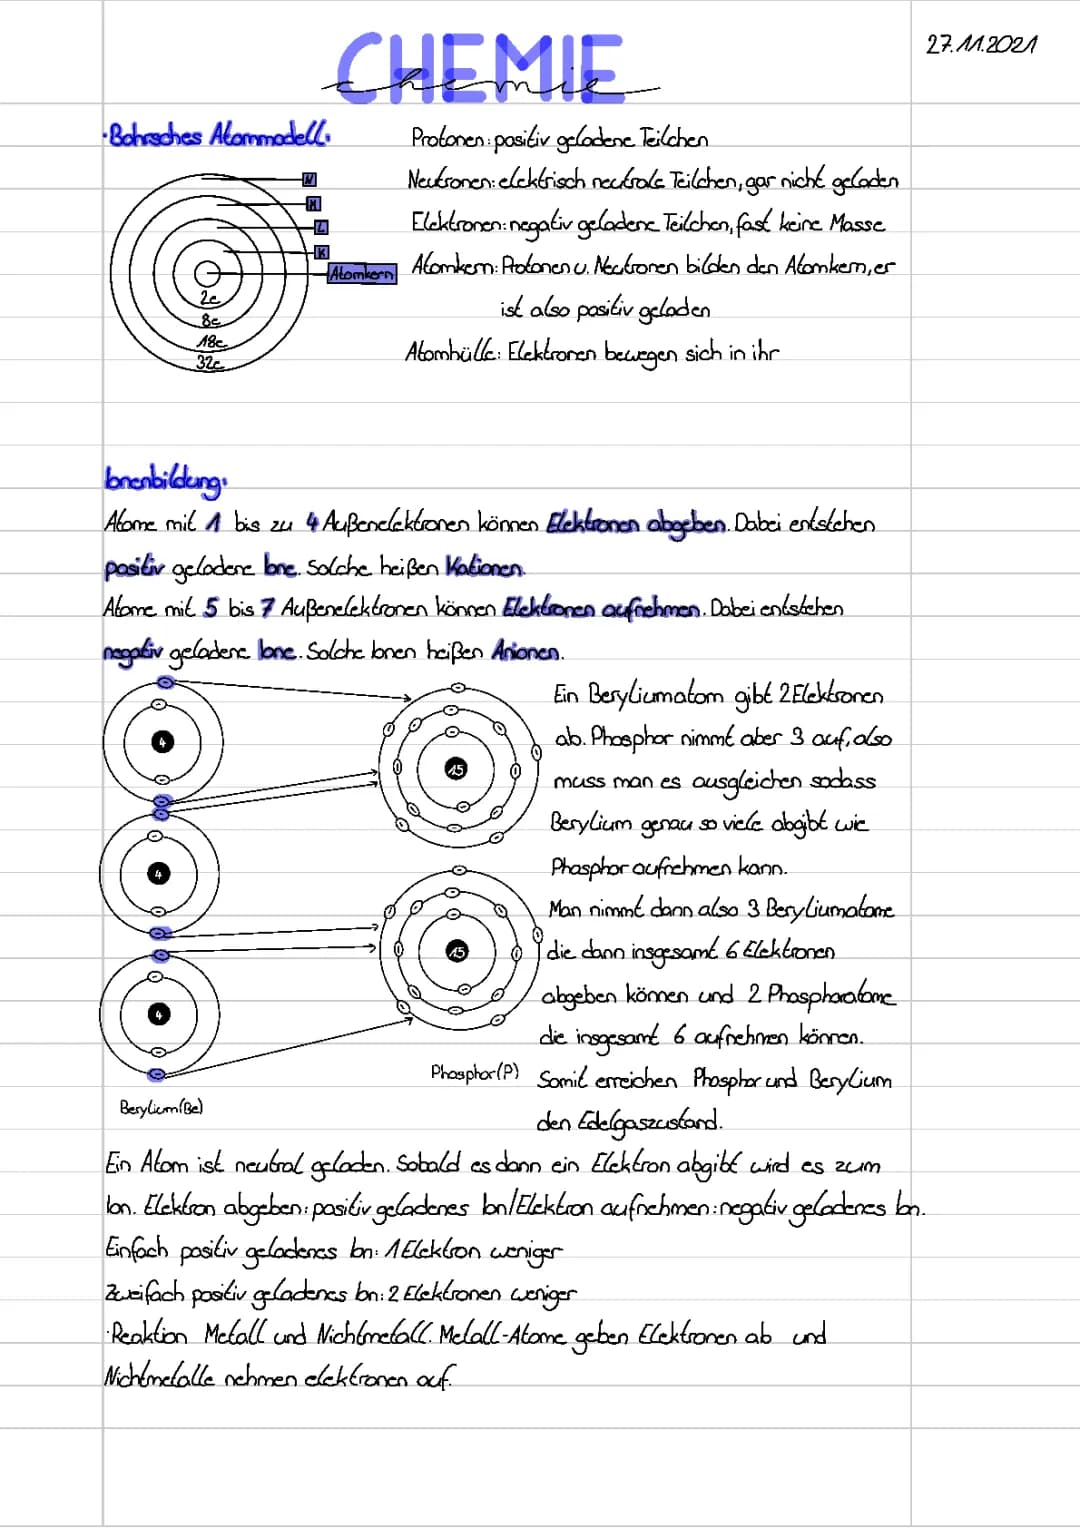 CHEMIE
chemie
27.11.2021
·Bohrsches Atommodell:
N
M
L
K
Atomkern
2e
8e
18e
32e
Protonen: positiv geladene Teilchen
Neutronen: elektrisch neutrale Teilchen, gar nicht geladen
Elektronen: negativ geladene Teilchen, fast keine Masse
Atomkern: Protonen u. Neutronen bilden den Atomkern, er
ist also positiv geladen
Atomhülle: Elektronen bewegen sich in ihr
Ionenbildung:
Atome mit 1 bis zu 4 Außenelektronen können Elektronen abgeben. Dabei entstehen
positiv geladene Ione. Solche heißen Kationen.
Atome mit 5 bis 7 Außenelektronen können Elektronen aufnehmen. Dabei entstehen
negativ geladene Ione. Solche Ionen heißen Anionen.
4
4
4
Berylium(Be)
15
15
Phosphor(P)
Ein Beryliumatom gibt 2 Elektronen
ab. Phosphor nimmt aber 3 auf, also
muss man es ausgleichen sodass
Berylium genau so viele abgibt wie
Phosphor aufnehmen kann.
Man nimmt dann also 3 Beryliumatome
die dann insgesamt 6 Elektronen
abgeben können und 2 Phosphoratome
die insgesamt 6 aufnehmen können.
Somit erreichen Phosphor und Berylium
den Edelgaszustand.
Ein Atom ist neutral geladen. Sobald es dann ein Elektron abgibt wird es zum
Ion. Elektron abgeben: positiv geladenes Ion/Elektron aufnehmen: negativ geladenes Ion.
Einfach positiv geladenes Ion: 1 Elektron weniger
Zweifach positiv geladenes Ion: 2 Elektronen weniger
·Reaktion Metall und Nichtmetall: Metall-Atome geben Elektronen ab und
Nichtmetalle nehmen elektronen auf.